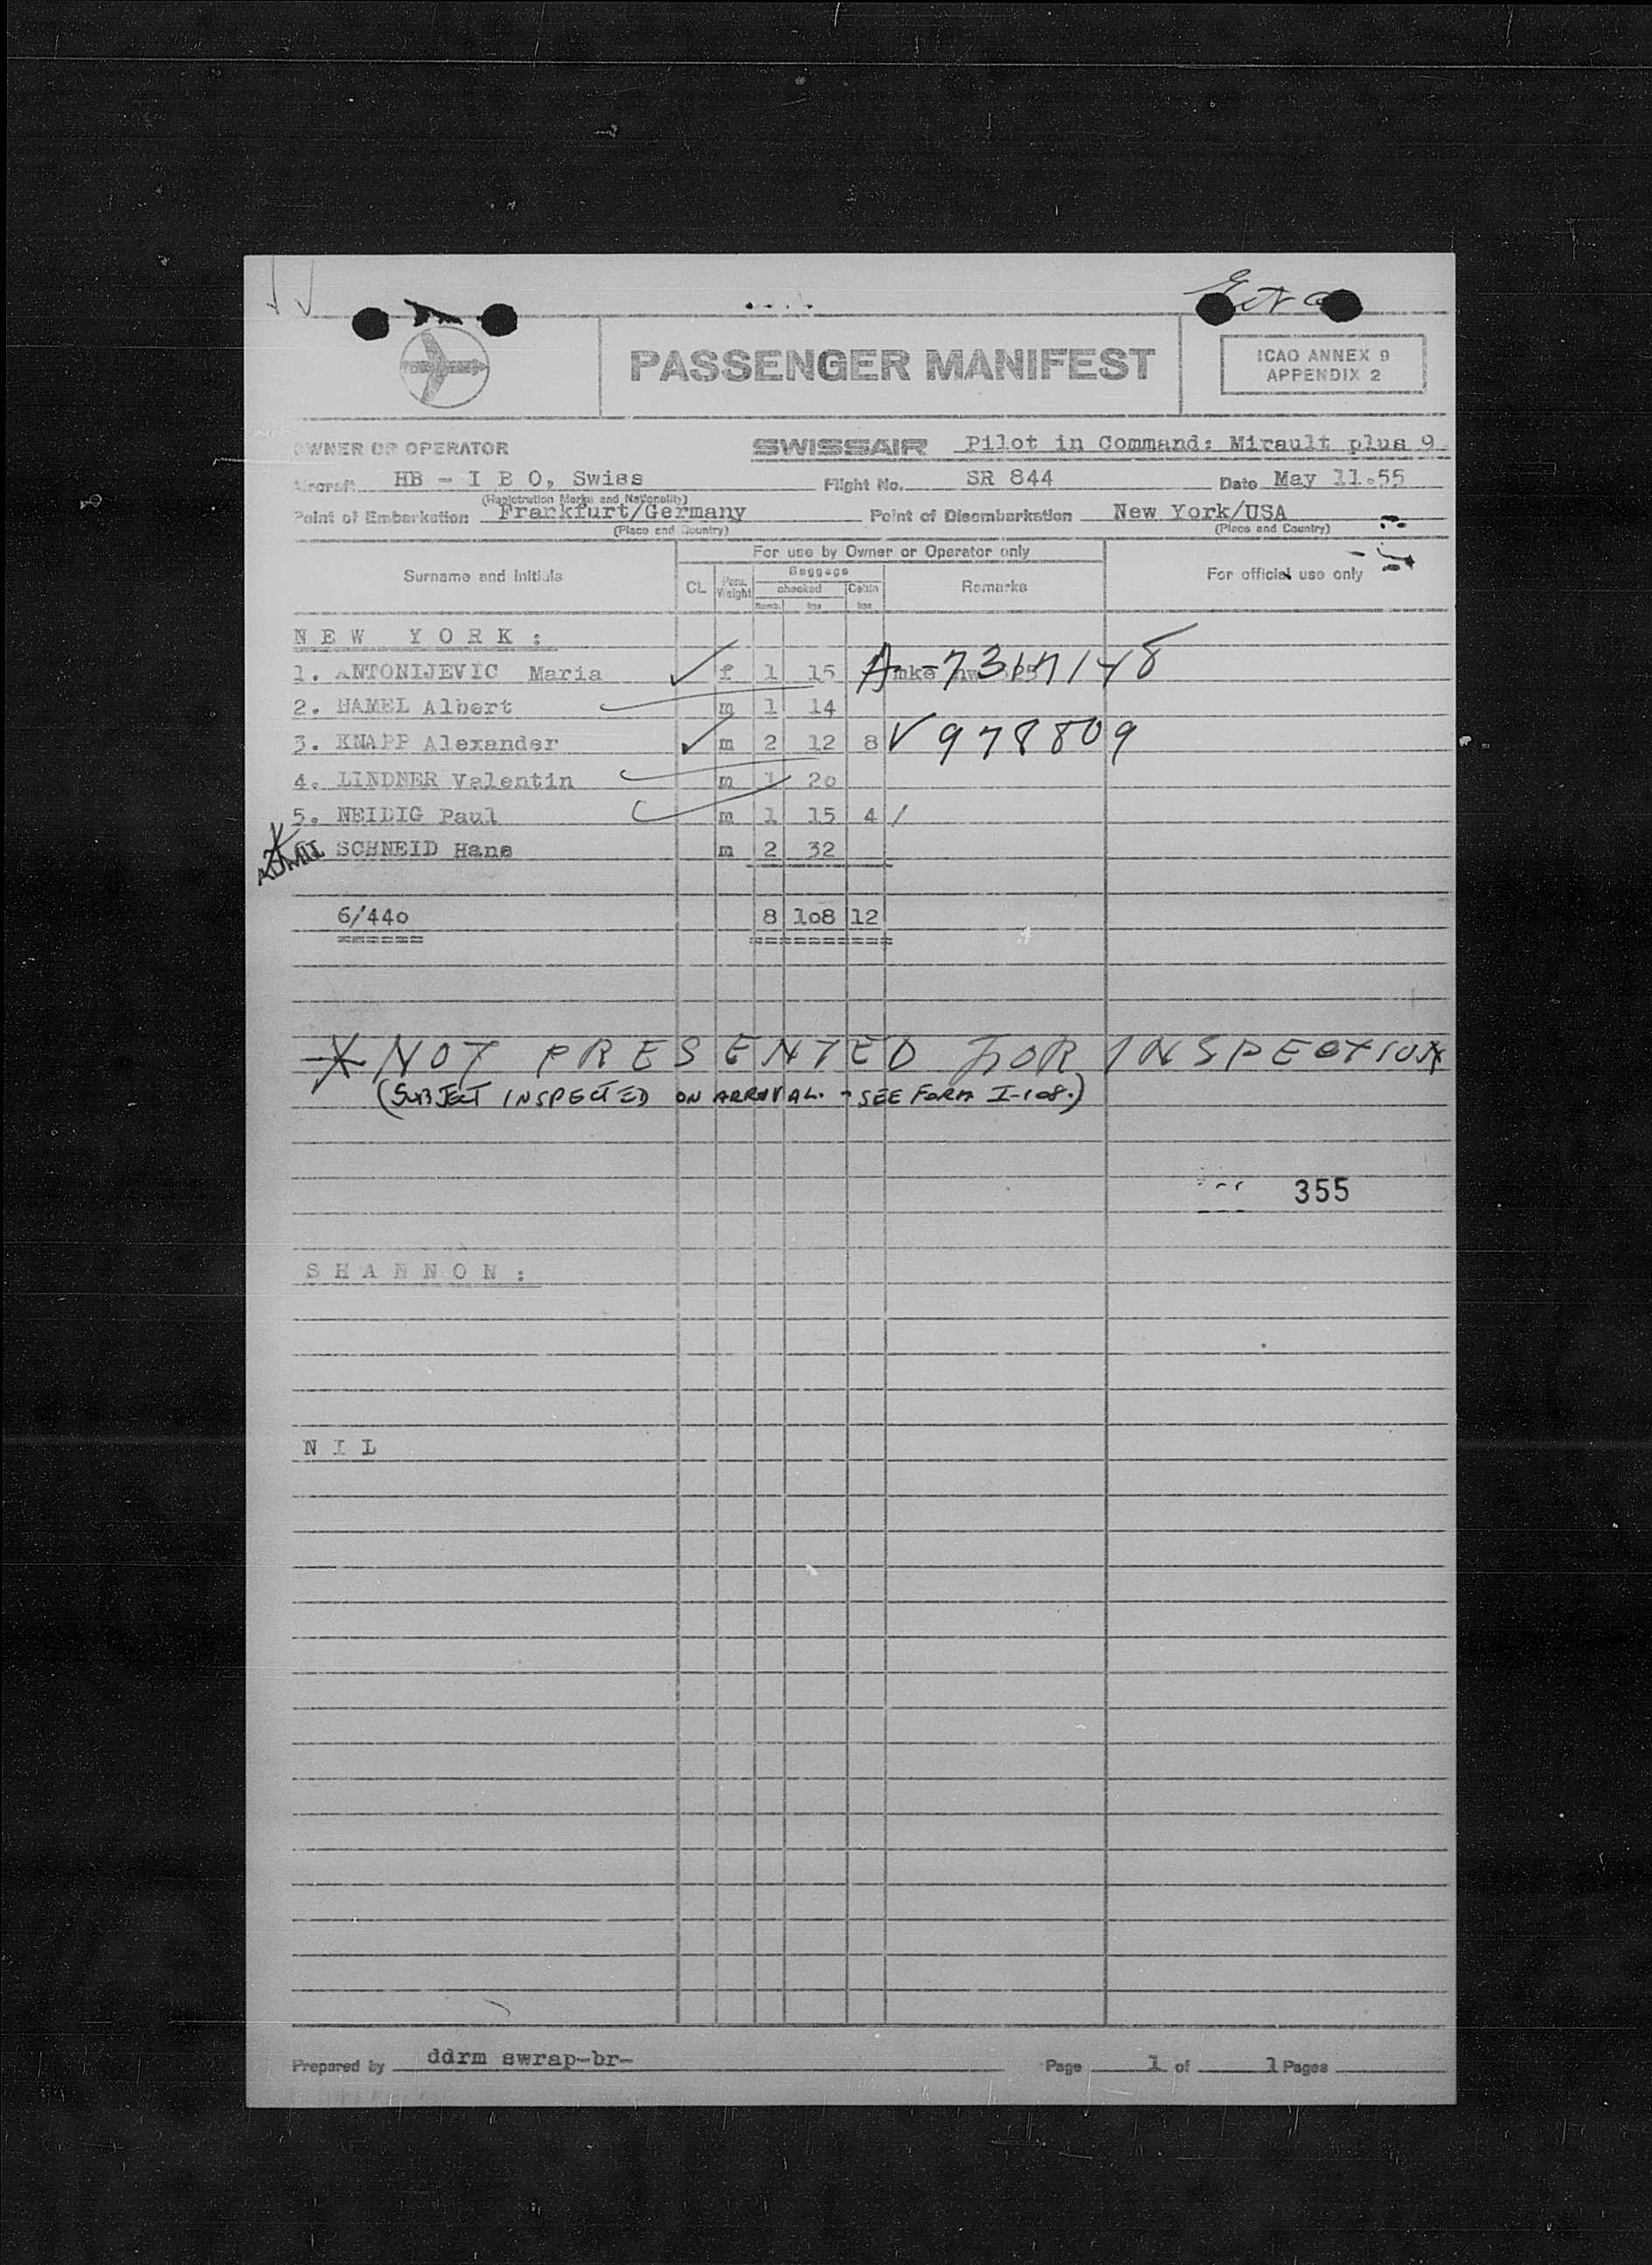 PASSENGER MANIFEST
ICAO ANNEX 9
APPENDIX 2
OWNER OR OPERATOR SWISSAIR Pilot in Command: Mirault plus 9
Aircraft HB - I B O, Swiss Flight No. SR 844 Date May 11.55
(Registration Marks and Nationality)
Point of Embarkation Frankfurt/Germany Point of Disembarkation New York/USA
(Place and Country) (Place and Country)
For use by Owner or Operator only
Surname and initials CL Pers. Weight Baggage checked Numb. kgs Cabin kgs Remarks For official use only
N E W Y O R K :
1. ANTONIJEVIC Maria f 1 15
2. HAMEL Albert m 1 14
3. KNAPP Alexander m 2 12 8 V 978809
4. LINDNER Valentin m 1 20
5. NEIDIG Paul m 1 15 4 /
SCHNEID Hans m 2 32
6/44o 8 1o8 12
X NOT PRESENTED FOR INSPECTION
(SUBJECT INSPECTED ON ARRIVAL. - SEE FORM I-108.)
355
S H A N N O N :
N I L
Prepared by ddrm swrap-br- Page 1 of 1 Pages